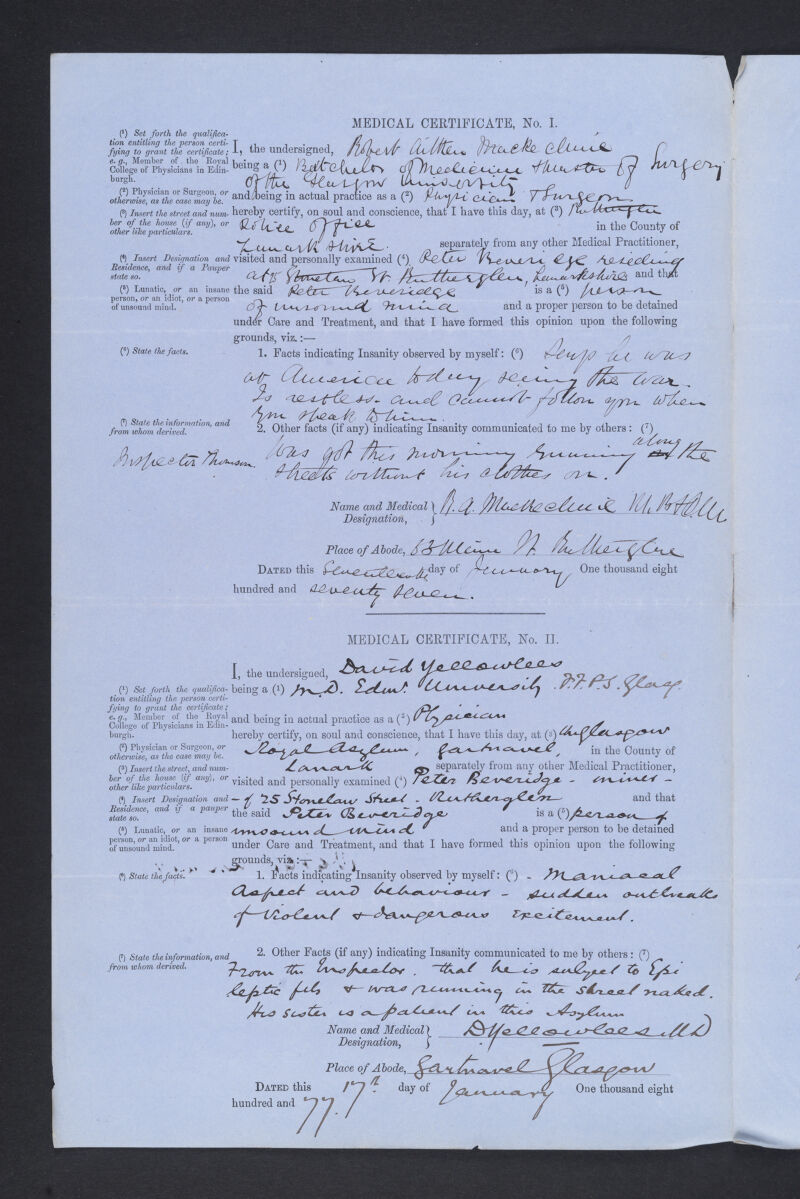 MEDICAL CERTIFICATE, No. I.
(1) Set forth the qualifica-
tion entitling the person certi-
fying to grant the certificate;
e. g., Member of the Royal
College of Physicians in Edin-
burgh.
(2) Physician or Surgeon, or
otherwise, as the case may be.
(3) Insert the street and num-
ber of the house (if any), or
other like particulars.
(4) Insert Designation and
Residence, and if a Pauper
state so.
(5) Lunatic, or an insane
person, or an idiot, or a person
of unsound mind.
I, the undersigned, Robert Aitken Mackechnie
being a (1) Batchelor of Medicine & Master of Surgery
of the Glasgow University
and being in actual practice as a (2) Physician & Surgeon
hereby certify, on soul and conscience, that I have this day, at (3) Rutherglen
Police Office in the County of
Lanarkshire separately from any other Medical Practitioner,
visited and personally examined (4) Peter Beveridge residing
at Stonelaw St. Rutherglen, Lanarkshire and that
the said Peter Beveridge is a (5) person
of unsound mind and a proper person to be detained
under Care and Treatment, and that I have formed this opinion upon the following
grounds, viz.:—
(6) State the facts.
1. Facts indicating Insanity observed by myself: (6) Says he was
at America today seeing the War.
Is restless and cannot follow you when
you speak to him.
(7) State the information, and
from whom derived.
Inspector Thomson
2. Other facts (if any) indicating Insanity communicated to me by others: (7)
Was got this morning running along the
streets without his clothes on.
Name and Medical Designation, R. A. Mackechnie M.B. & C.M.
Place of Abode, 63 Main St Rutherglen
DATED this Seventeenth day of January One thousand eight
hundred and seventy seven.
MEDICAL CERTIFICATE, No. II.
(1) Set forth the qualifica-
tion entitling the person certi-
fying to grant the certificate;
e. g., Member of the Royal
College of Physicians in Edin-
burgh.
(2) Physician or Surgeon, or
otherwise, as the case may be.
(3) Insert the street and num-
ber of the house (if any), or
other like particulars.
(4) Insert Designation and
Residence, and if a pauper
state so.
(5) Lunatic, or an insane
person, or an idiot, or a person
of unsound mind.
I, the undersigned, David Yellowlees
being a (1) M.D. Edinr. University. F.F.P.S. Glasg.
and being in actual practice as a (2) Physician
hereby certify, on soul and conscience, that I have this day, at (3) the Glasgow
Royal Asylum, Gartnavel, in the County of
Lanark separately from any other Medical Practitioner,
visited and personally examined (4) Peter Beveridge - miner -
- of 25 Stonelaw Street - Rutherglen and that
the said Peter Beveridge is a (5) person of
unsound mind and a proper person to be detained
under Care and Treatment, and that I have formed this opinion upon the following
grounds, viz.:—
(6) State the facts.
1. Facts indicating Insanity observed by myself: (6) - Maniacal
Aspect and behaviour - sudden outbreaks
of violent & dangerous excitement.
(7) State the information, and
from whom derived.
2. Other Facts (if any) indicating Insanity communicated to me by others: (7)
From the Inspector. that he is subject to Epi
leptic fits & was running in the street naked.
His sister is a patient in this Asylum
Name and Medical Designation, D Yellowlees MD
Place of Abode, Gartnavel Glasgow
DATED this 17th day of January One thousand eight
hundred and 77.